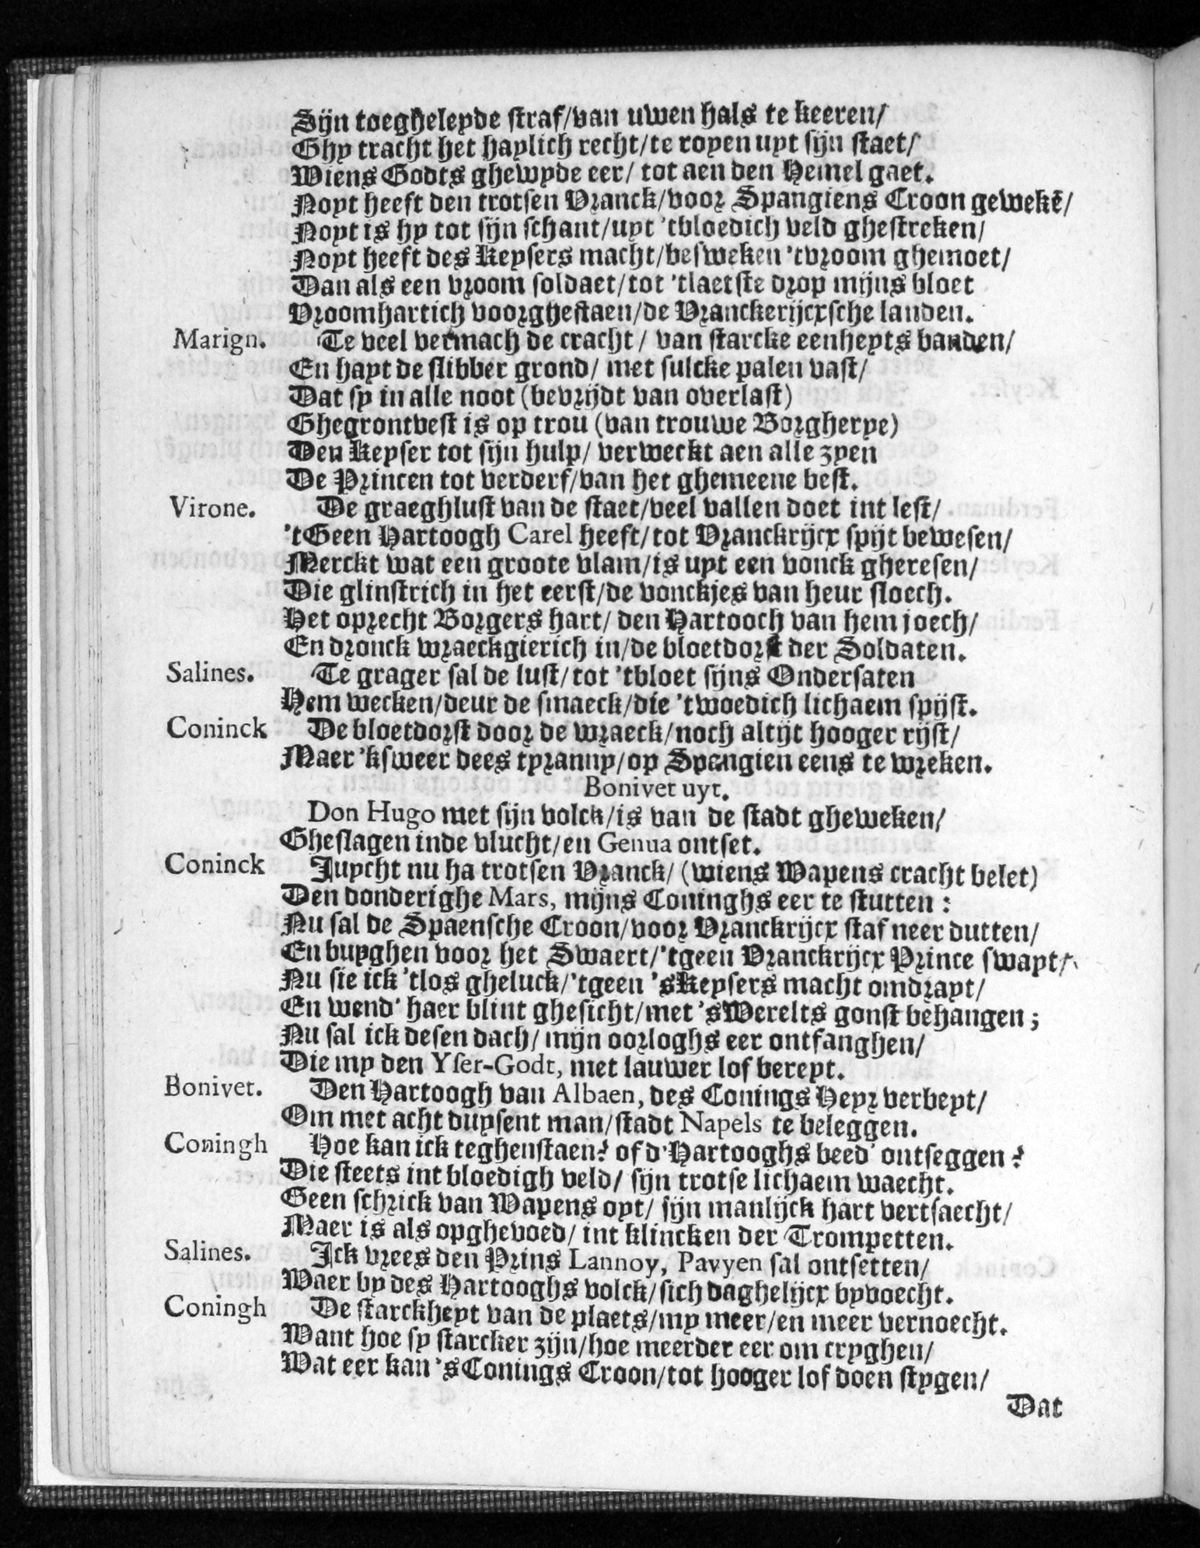 Sijn toegheleyde straf/van uwen hals te keeren/
Ghy tracht het haylich recht/te royen uyt sijn staet/
Wiens Godts ghewyde eer/ tot aen den Hemel gaet.
Noyt heeft den trotsen Vranck/voor Spangiens Croon gewekẽ/
Noyt is hy tot sijn schant/uyt 'tbloedich veld ghestreken/
Noyt heeft des Keysers macht/besweken 'tvroom ghemoet/
Dan als een vroom soldaet/tot 'tlaetste drop mijns bloet
Vroomhartich voorghestaen/de Vranckerijcxsche landen.
Marign. Te veel vermach de cracht/ van starcke eenheyts banden/
En hayt de slibber grond/ met sulcke palen vast/
Dat sy in alle noot (bevrijdt van overlast)
Ghegrontvest is op trou (van trouwe Borgherye)
Den Keyser tot sijn hulp/ verweckt aen alle zyen
De Princen tot verderf/van het ghemeene best.
Virone. De graeghlust van de staet/veel vallen doet int lest/
'tGeen Hartoogh Carel heeft/tot Vranckrijcx spijt bewesen/
Merckt wat een groote vlam/is uyt een vonck gheresen/
Die glinstrich in het eerst/de vonckjes van heur sloech.
Het oprecht Borgers hart/ den Hartooch van hem joech/
En dronck wraeckgierich in/de bloetdorst der Soldaten.
Salines. Te grager sal de lust/tot 'tbloet sijns Ondersaten
Hem wecken/deur de smaeck/die 'twoedich lichaem spijst.
Coninck De bloetdorst door de wraeck/noch altijt hooger rijst/
Maer 'ksweer dees tyranny/op Spangien eens te wreken.
Bonivet uyt.
Don Hugo met sijn volck/is van de stadt gheweken/
Gheslagen inde vlucht/en Genua ontset.
Coninck Juycht nu ha trotsen Vranck/ (wiens Wapens cracht belet)
Den donderighe Mars, mijns Coninghs eer te stutten:
Nu sal de Spaensche Croon/voor Vranckrijcx staf neer dutten/
En buyghen voor het Swaert/'tgeen Vranckrijcx Prince swayt/
Nu sie ick 'tlos gheluck/'tgeen 'sKeysers macht omdrayt/
En wend' haer blint ghesicht/met 'sWerelts gonst behangen;
Nu sal ick desen dach/ mijn oorloghs eer ontfanghen/
Die my den Yser-Godt, met lauwer lof bereyt.
Bonivet. Den Hartoogh van Albaen, des Conings Heyr verbeyt/
Om met acht duysent man/stadt Napels te beleggen.
Coningh Hoe kan ick teghenstaen? of d'Hartooghs beed' ontseggen?
Die steets int bloedigh veld/ sijn trotse lichaem waecht.
Geen schrick van Wapens oyt/ sijn manlijck hart vertsaecht/
Maer is als opghevoed/ int klincken der Trompetten.
Salines. Ick vrees den Prins Lannoy, Pavyen sal ontsetten/
Waer by des Hartooghs volck/sich daghelijcx byvoecht.
Coningh De starckheyt van de plaets/my meer/en meer vernoecht.
Want hoe sy starcker zijn/hoe meerder eer om cryghen/
Wat eer kan 'sConings Croon/tot hooger lof doen stygen/
Dat